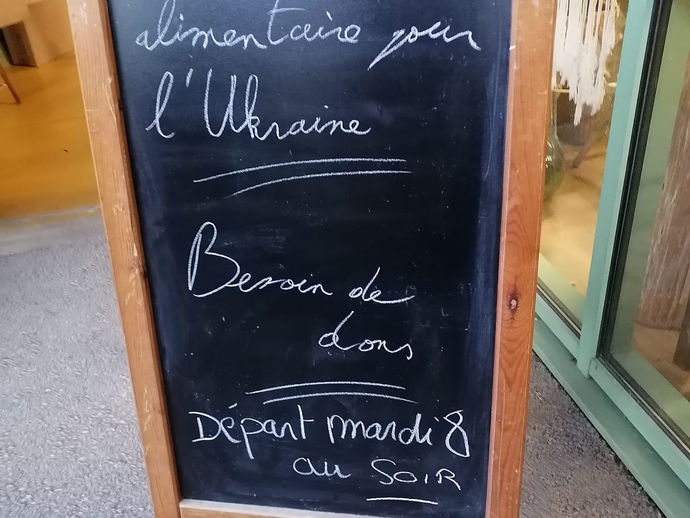 alimentaire pour
l'Ukraine
Besoin de
dons
Départ mardi 8
au SOIR